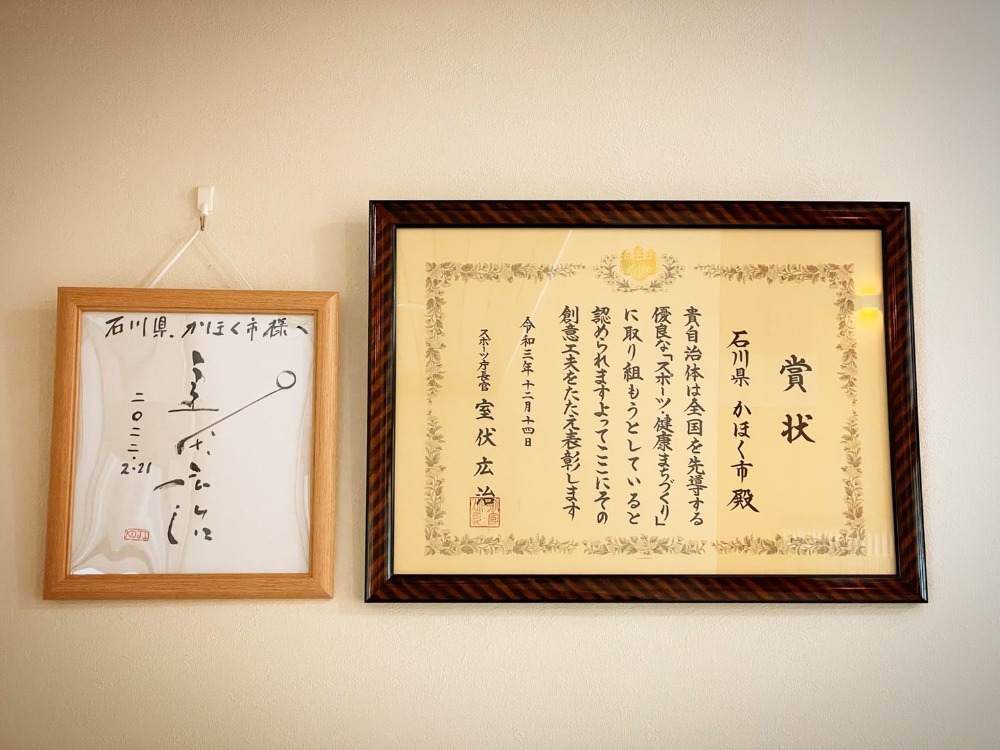 石川県.かほく市様へ
室伏広治
二〇二二.
2.21
KOJI
賞状
石川県 かほく市 殿
貴自治体は全国を先導する
優良な「スポーツ・健康まちづくり」
に取り組もうとしていると
認められますよってここにその
創意工夫をたたえ表彰します
令和三年十二月十四日
スポーツ庁長官 室伏広治